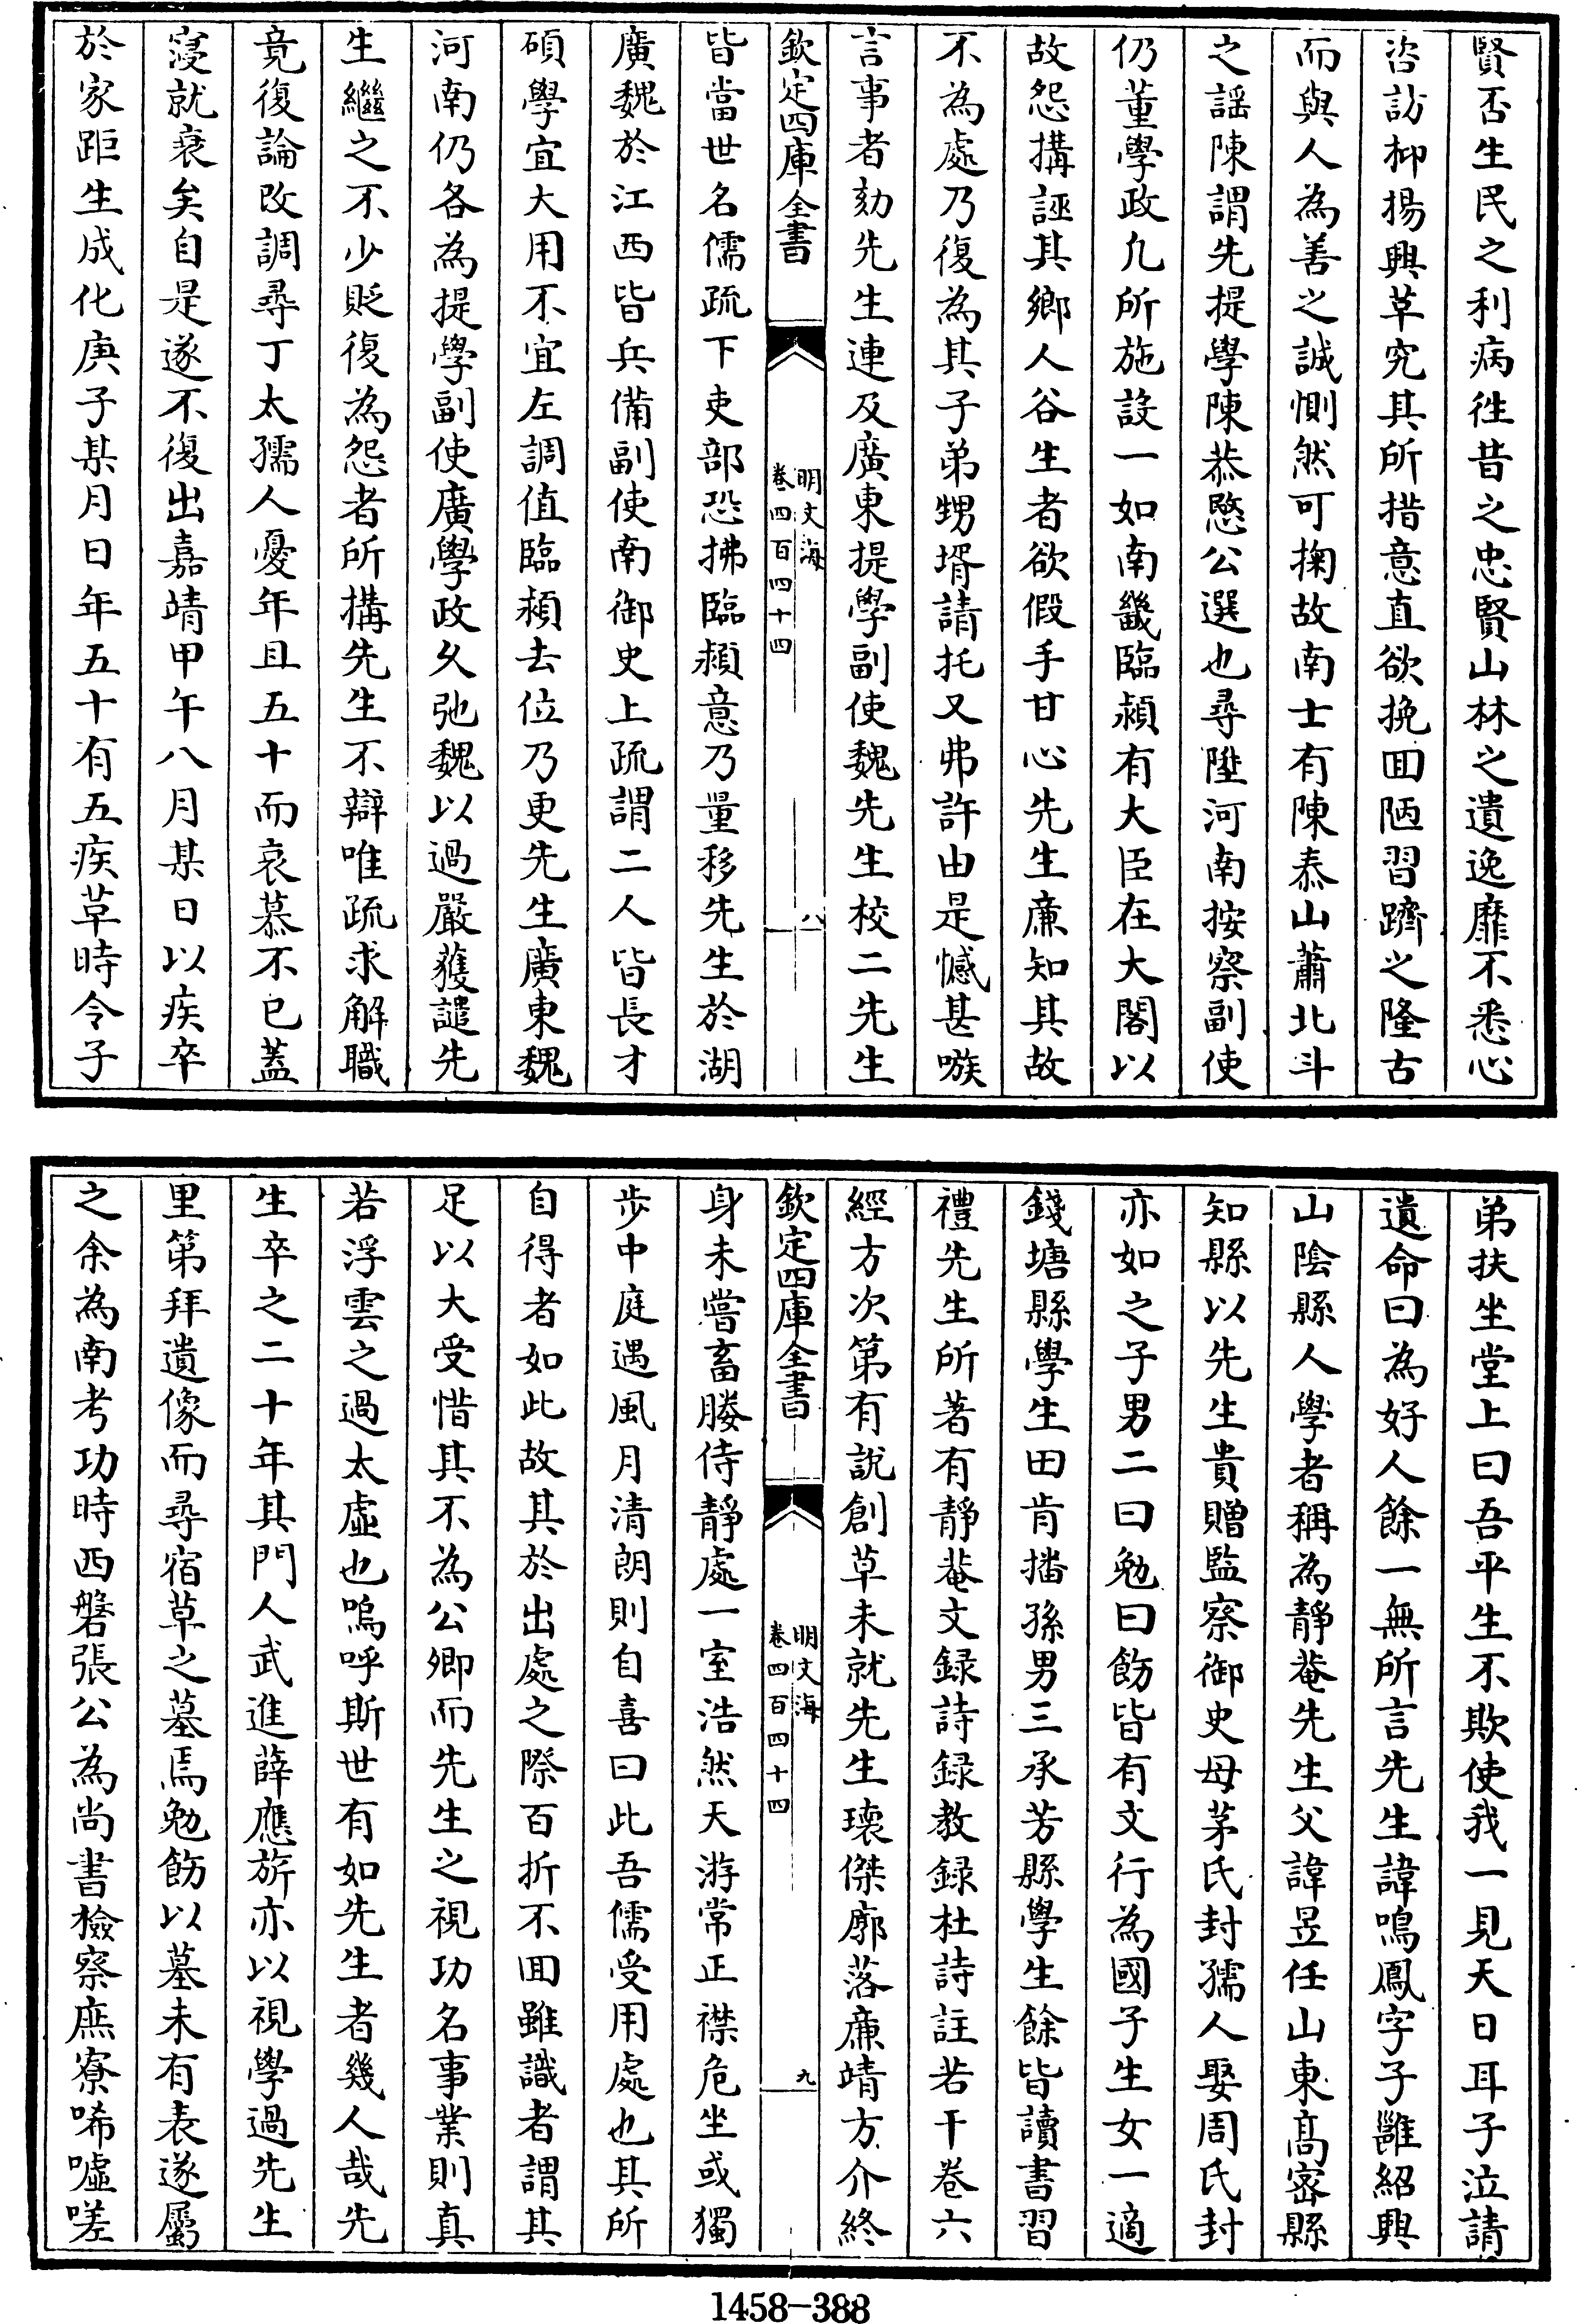 賢否生民之利病徃昔之忠賢山林之遺逸靡不悉心
咨訪枊揚興草究其所措意直欲挽回陋習躋之隆古
而與人為善之誠惻然可掬故南士有陳泰山蕭北斗
之謡陳謂先提學陳恭愍公選也尋陞河南按察副使
仍董學政凢所施設一如南畿臨潁有大臣在大閣以
故怨搆誣其鄉人谷生者欲假手甘心先生亷知其故
不為處乃復為其子弟甥壻請托又弗許由是憾甚嗾
言事者劾先生連及廣東提學副使魏先生校二先生
欽定四庫全書
明文海
卷四百四十四
八
皆當世名儒疏下吏部恐拂臨潁意乃量移先生於湖
廣魏於江西皆兵備副使南御史上疏謂二人皆長才
碩學宜大用不宜左調值臨潁去位乃更先生廣東魏
河南仍各為提學副使廣學政久弛魏以過嚴獲譴先
生繼之不少貶復為怨者所搆先生不辯唯疏求解職
竟復論改調尋丁太孺人憂年且五十而哀慕不已蓋
寖就衰矣自是遂不復出嘉靖甲午八月某日以疾卒
於家距生成化庚子某月日年五十有五疾革時令子
弟扶坐堂上曰吾平生不欺使我一見天日耳子泣請
遺命曰為好人餘一無所言先生諱鳴鳳字子雝紹興
山陰縣人學者稱為靜菴先生父諱昱任山東髙宻縣
知縣以先生貴贈監察御史母茅氏封孺人娶周氏封
亦如之子男二曰勉曰飭皆有文行為國子生女一適
錢塘縣學生田肯播孫男三承芳縣學生餘皆讀書習
禮先生所著有靜菴文録詩録教録杜詩註若干卷六
經方次第有說創草未就先生瓌傑廓落亷靖方介終
欽定四庫全書
明文海
卷四百四十四
九
身未嘗畜媵侍靜處一室浩然天游常正襟危坐或獨
步中庭遇風月清朗則自喜曰此吾儒受用處也其所
自得者如此故其於出處之際百折不回雖識者謂其
足以大受惜其不為公卿而先生之視功名事業則真
若浮雲之過太虛也嗚呼斯世有如先生者幾人哉先
生卒之二十年其門人武進薛應旂亦以視學過先生
里第拜遺像而尋宿草之墓焉勉飭以墓未有表遂屬
之余為南考功時西磐張公為尚書檢察庶寮唏噓嗟
1458-388